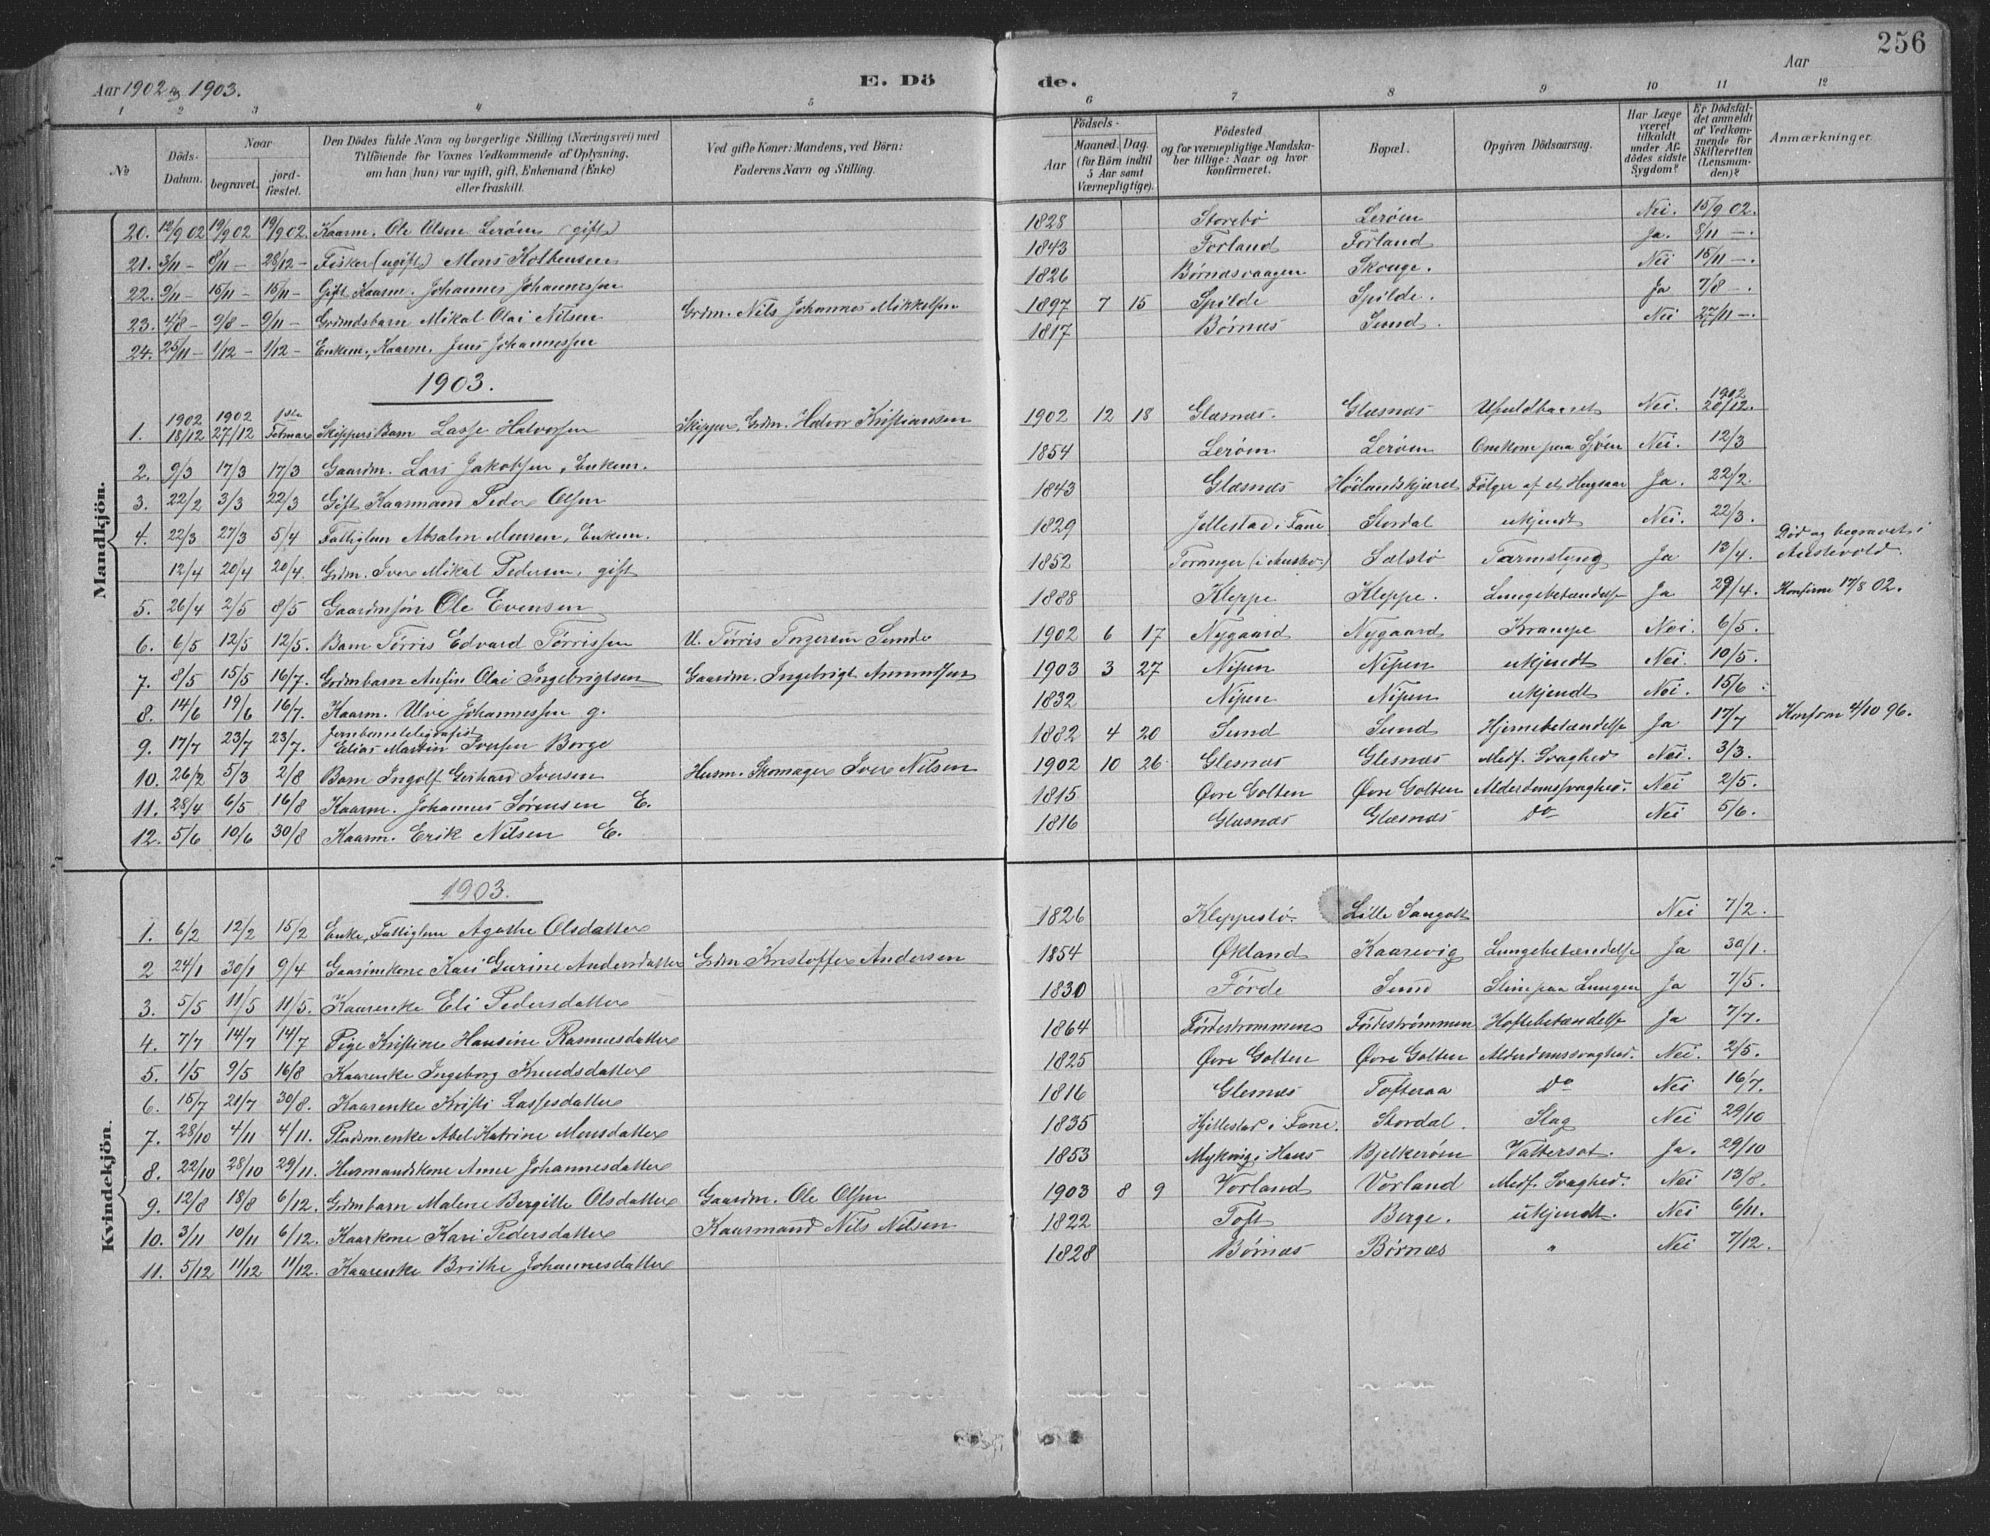 256
Aar 1902 og 1903.
E. Dö
de.
Aar
1 2 3 4 5 6 7 8 9 10 11 12
№
Döds-Datum.
Naar
begravet.
jord-fæstet.
Den Dödes fulde Navn og borgerlige Stilling (Næringsvei) med
Tilföiende for Voxnes Vedkommende af Oplysning,
om han (hun) var ugift, gift, Enkemand (Enke)
eller fraskilt.
Ved gifte Koner: Mandens, ved Börn:
Faderens Navn og Stilling.
Födsels-
Aar
Maaned. Dag.
(for Börn indtil
5 Aar samt
Værnepligtige).
Födested
og for værnepligtige Mandska-
ber tillige: Naar og hvor
konfirmeret.
Bopæl.
Opgiven Dödsaarsag.
Har Læge
været
tilkaldt
under Af-
dödes sidste
Sygdom?
Er Dödsfal-
det anmeldt
af Vedkom-
mende for
Skifteretten
(Lensman-
den)?
Anmærkninger.
Mandkjön.
20. 12/9 02 19/9 02 19/9 02. Kaarm. Ole Olsen Lerøen (gift) 1828 Storebø Lerøen Nei. 15/9 02.
21. 3/11 – 8/11 – 28/12 – Fisker (ugift) Mons Kolbensen 1843 Forland Forland Ja. 8/11 –.
22. 9/11 – 15/11 – 15/11 – Gift Kaarm. Johannes Johannessen 1826 Børnæsvaagen Skoge. Nei 15/11 –.
23. 4/8 – 9/8 – 9/11 – Grdmdsbarn Mikal Olai Nilsen Grdm. Nils Johannes Mikkelsen 1897 7 15 Spilde Spilde. Ja 7/8 –.
24. 25/11 – 1/12 – 1/12 – Enkem. Kaarm. Jens Johannessen 1817 Børnæs Sund. Nei 27/11 –.
1903.
1. 1902 18/12 1902 27/12 1ste Februar Skippers Barn Lasse Halvorsen Skipper, Grdm. Halvor Kristiansen 1902 12 18 Glæsnæs. Glæsnæs Ufuldbaaret Nei. 1902 20/12.
2. 9/3 17/3 17/3 Gaardm. Lars Jakobsen, Enkem. 1854 Lerøen Lerøen Omkom paa Sjøen Nei. 12/3
3. 22/2 3/3 22/3 Gift Kaarmand Peder Olsen 1843 Glæsnæs Høilandskjæret Følger af et Hugsaar Ja. 22/2.
4. 22/3 27/3 5/4 Fattiglem Absalon Monsen, Enkem. 1829 Jellestad i Fane Stordal ukjendt Nei. 22/3.
12/4 20/4 20/4. Grdm. Iver Mikal Pedersen, gift 1852 Toranger (i Austev.) Sælstø Tarmslyng Ja 13/4. Død og begravet i Austevold.
5. 26/4 2/5 8/5 Gaardmsøn Ole Evensen 1888 Kleppe Kleppe. Lungebetændelse Ja 29/4. Konfirm 17/8 02.
6. 6/5 12/5 12/5. Barn Tørris Edvard Tørrissen U. Tørris Torgersen Sunde 1902 6 17 Nygaard Nygaard Krampe Nei. 6/5.
7. 8/5 15/5 16/7. Grdmbarn Anfin Olai Ingebrigtsen Gaardm. Ingebrigt Amundsen 1903 3 27 Nipen Nipen ukjendt Nei. 10/5.
8. 14/6 19/6 16/7. Kaarm. Ulve Johannessen g. 1832 Nipen Nipen ukjendt Nei. 15/6.
9. 17/7 23/7 23/7. Jernbanetelegrafist Elias Martin Iversen Borge 1882 4 20 Sund Sund Hjernebetændelse Ja 17/7 Konfirm 4/10 96.
10. 26/2 5/3 2/8 Barn Ingolf Gerhard Iversen Husm. Skomager Iver Nilsen 1902 10 26 Glesnæs Glesnæs Medf. Svaghed Nei. 3/3.
11. 28/4 6/5 16/8 Kaarm. Johannes Sørensen E. 1815 Øvre Golten Øvre Golten Alderdomssvaghed. Nei 2/5.
12. 5/6 10/6 30/8 Kaarm. Erik Nilsen E. 1816 Glæsnæs Glæsnæs Do Nei 5/6.
Kvindekjön.
1903.
1. 6/2 12/2 15/2 Enke, Fattiglem Agathe Olsdatter 1826 Kleppestø. Lille Sangolt Nei 7/2.
2 24/1 30/1 9/4 Gaardmkone Kari Gurine Andersdatter Grdm Kristoffer Andersen 1854 Økland Kaarevig Lungebetændelse Ja 30/1.
3. 5/5 11/5 11/5. Kaarenke Eli Pedersdatter 1830 Førde Sund Slim paa Lungen Ja 7/5.
4. 7/7 14/7 14/7 Pige Kristine Hansine Rasmusdatter 1864 Førdestrømmen Førdestrømmen Hoftebetændelse Ja 7/7.
5. 1/5 9/5 16/8 Kaarenke Ingeborg Knudsdatter 1825 Øvre Golten Øvre Golten Alderdomssvaghed. Nei. 2/5.
6. 15/7 21/7 30/8. Kaarenke Kristi Lassesdatter 1816 Glesnæs Tofteraa Do Nei 16/7.
7. 28/10 4/11 4/11. Pladsmenke Abel Katrine Monsdatter 1835 Hjellestad i Fane. Stordal. Slag Nei 29/10
8. 22/10 28/10 29/11. Husmandskone Anne Johannesdatter 1853 Myking i Haus Bjelkerøen Vattersot. Ja. 29/10
9. 12/8 18/8 6/12. Grdmbarn Malene Bergitte Olsdatter Gaardm. Ole Olsen 1903 8 9 Vorland Vorland Medf. Svaghed. Nei 13/8.
10. 3/11 10/11 6/12. Kaarkone Kari Pedersdatter Kaarmand Nils Nilsen 1822 Toft Berge. ukjendt. Nei 6/11.
11. 5/12 11/12 11/12. Kaarenke Brithe Johannesdatter 1828 Børnæs Børnæs " Nei 7/12.